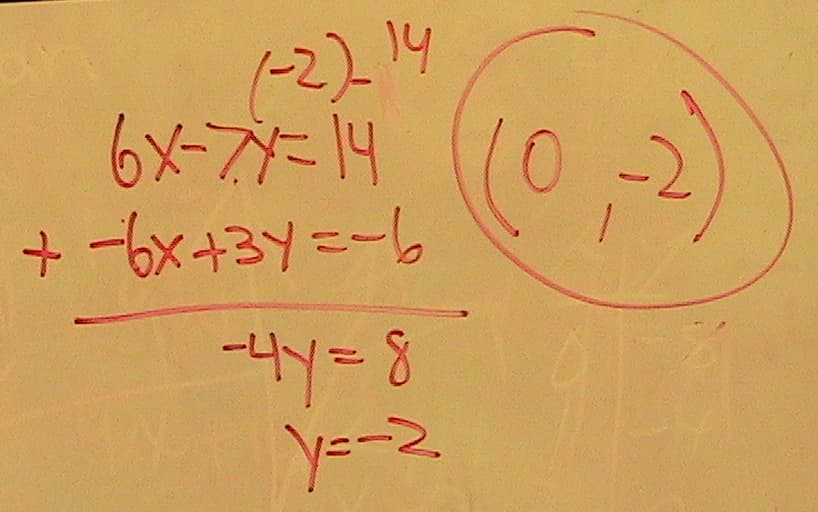 (-2)-14
6x-7y=14
(0,-2)
+ -6x+3y=-6
-4y=8
y=-2